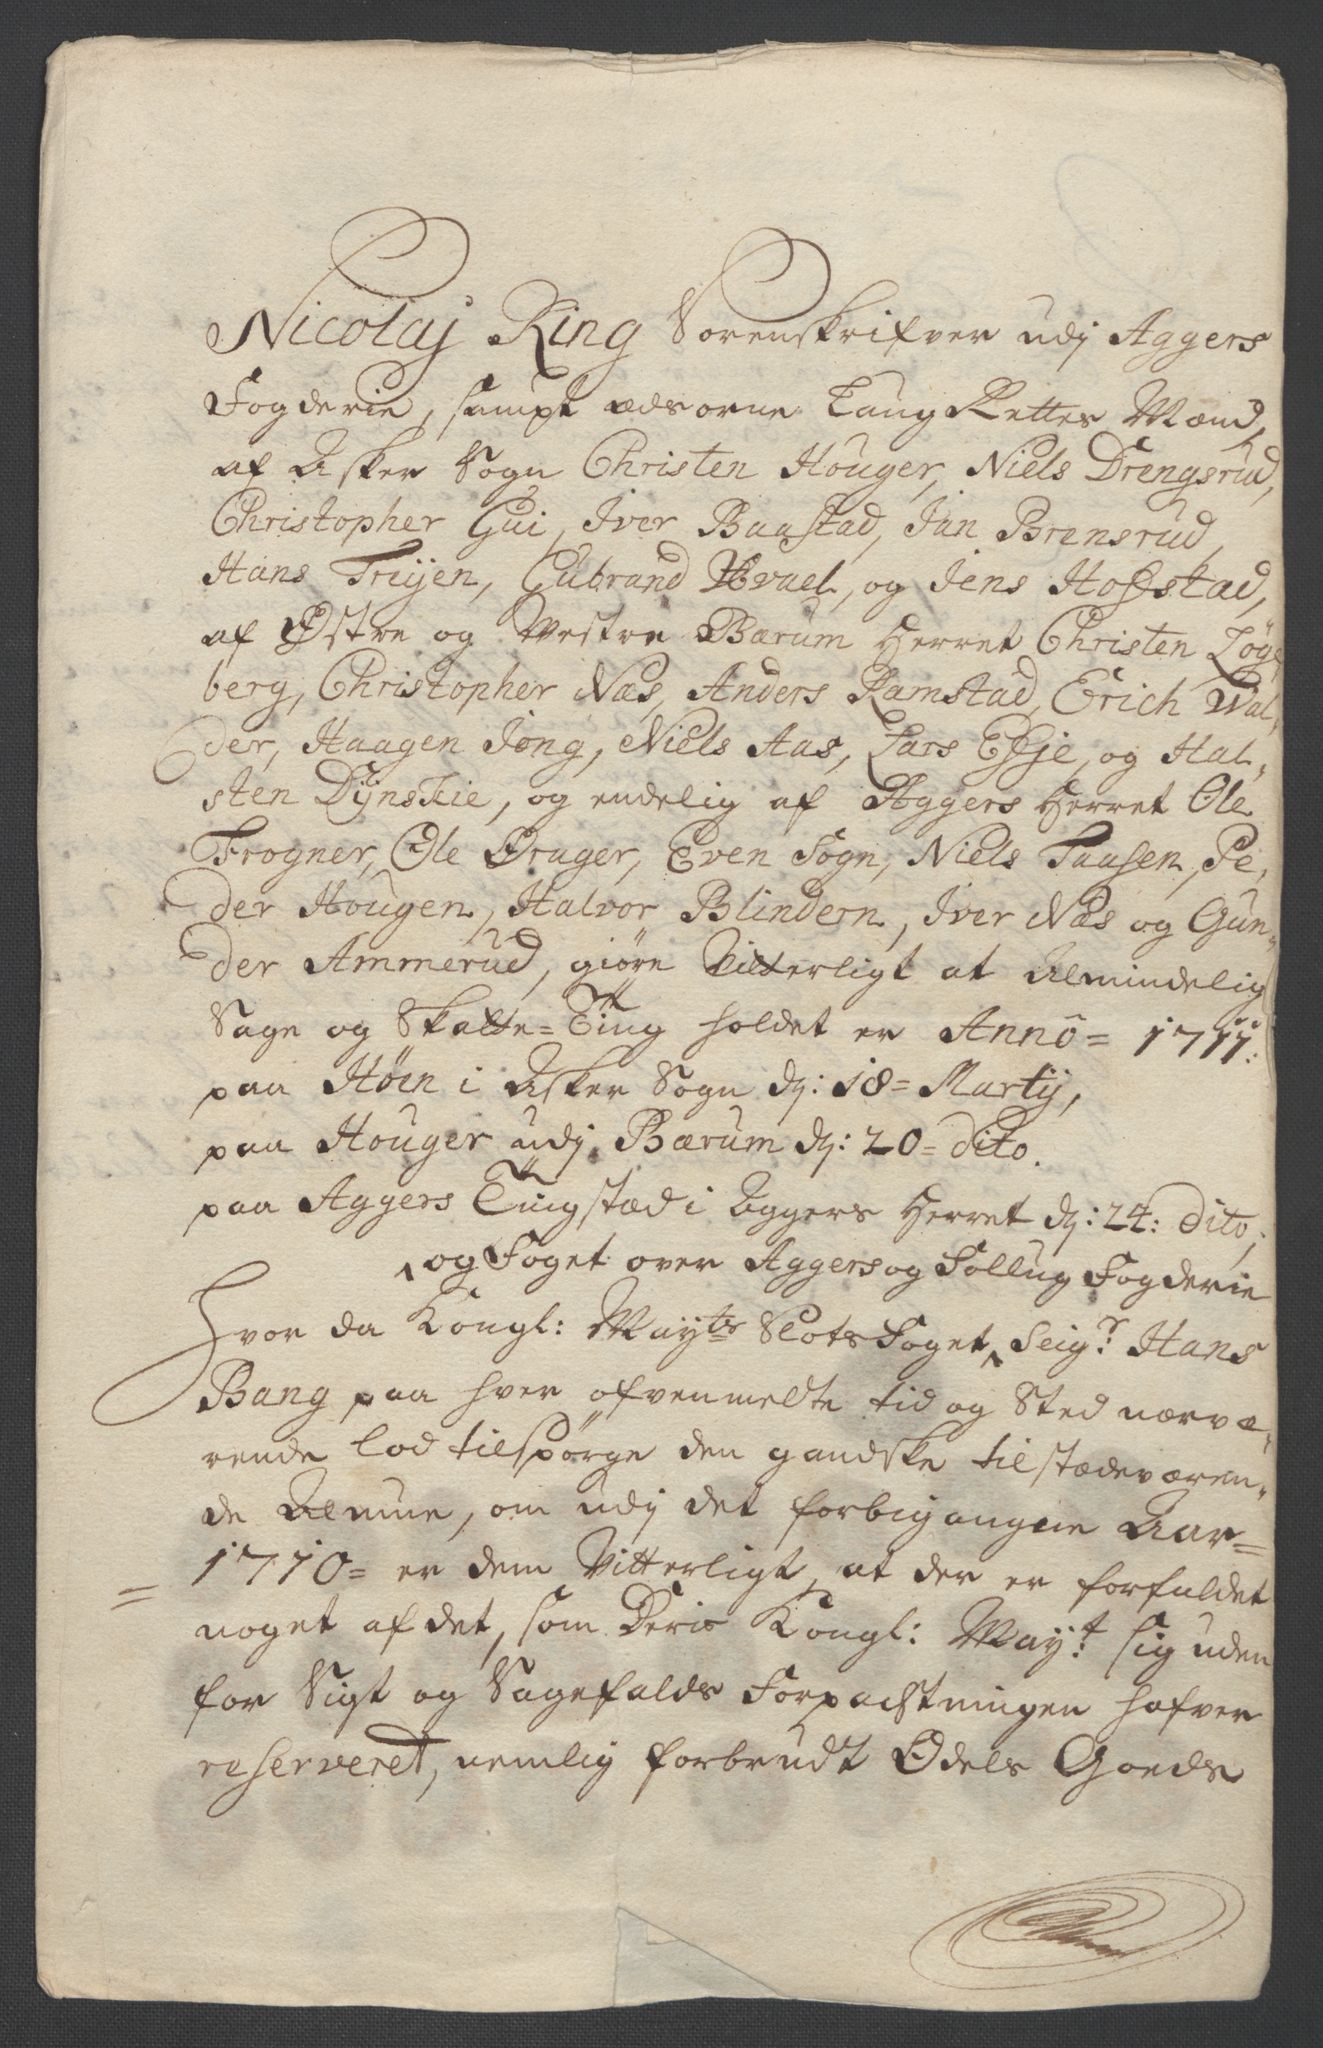 Nicolaj Ring Sorenskrifver udj Aggers
Fogderie, sampt edsorne Laug Rettes Mænd,
af Asker Sogn Christen Houger, Niels Drengsrud,
Christopher Gui, Iver Baastad, Jan Brensrud,
Hans Truijen, Gubrand Hvael, og Jens Hofstad,
af Østre og Westre Bærum Herret Christen Løg,
berg, Christopher Næs, Anders Ramstad, Erich Wal,
der, Haagen Jong, Niels Aas, Lars Eshje, og Hal,
sten Dÿnskie, og endelig af Aggers Herret Ole
Frogner, Ole Kruger, Even Sogn, Niels Taasen, Pe,
der Hougen, Halvor Blindern, Iver Næs og Gun,
der Ammerud, giøre Vitterligt at Almindelig
Sage og Skatte=Ting holdet er Anno= 1711:
paa Høen i Asker Sogn dj: 18= Martij,
paa Houger udj Bærum dj: 20= dito.
paa Aggers Tingstæd i Aggers Herret dj: 24: dito,
og Foget over Aggers og Follug Fogderie
Hvor da Kongl: Mayts Slots Foget, Seigr. Hans
Bang paa hver ofvenmelte tid og Sted nærvæ,
rende lod tilspørge den gandske tilstædeværen,
de Almue, om udj det forbigangne Aar=
= 1710= er dem Vitterligt, at der er forfaldet
noget af det, som Deris Kongl: Mayt. sig uden
for Sigt og Sagefalds Forpachtningen hafver
reserveret, nemlig forbrudt Odels Goeds